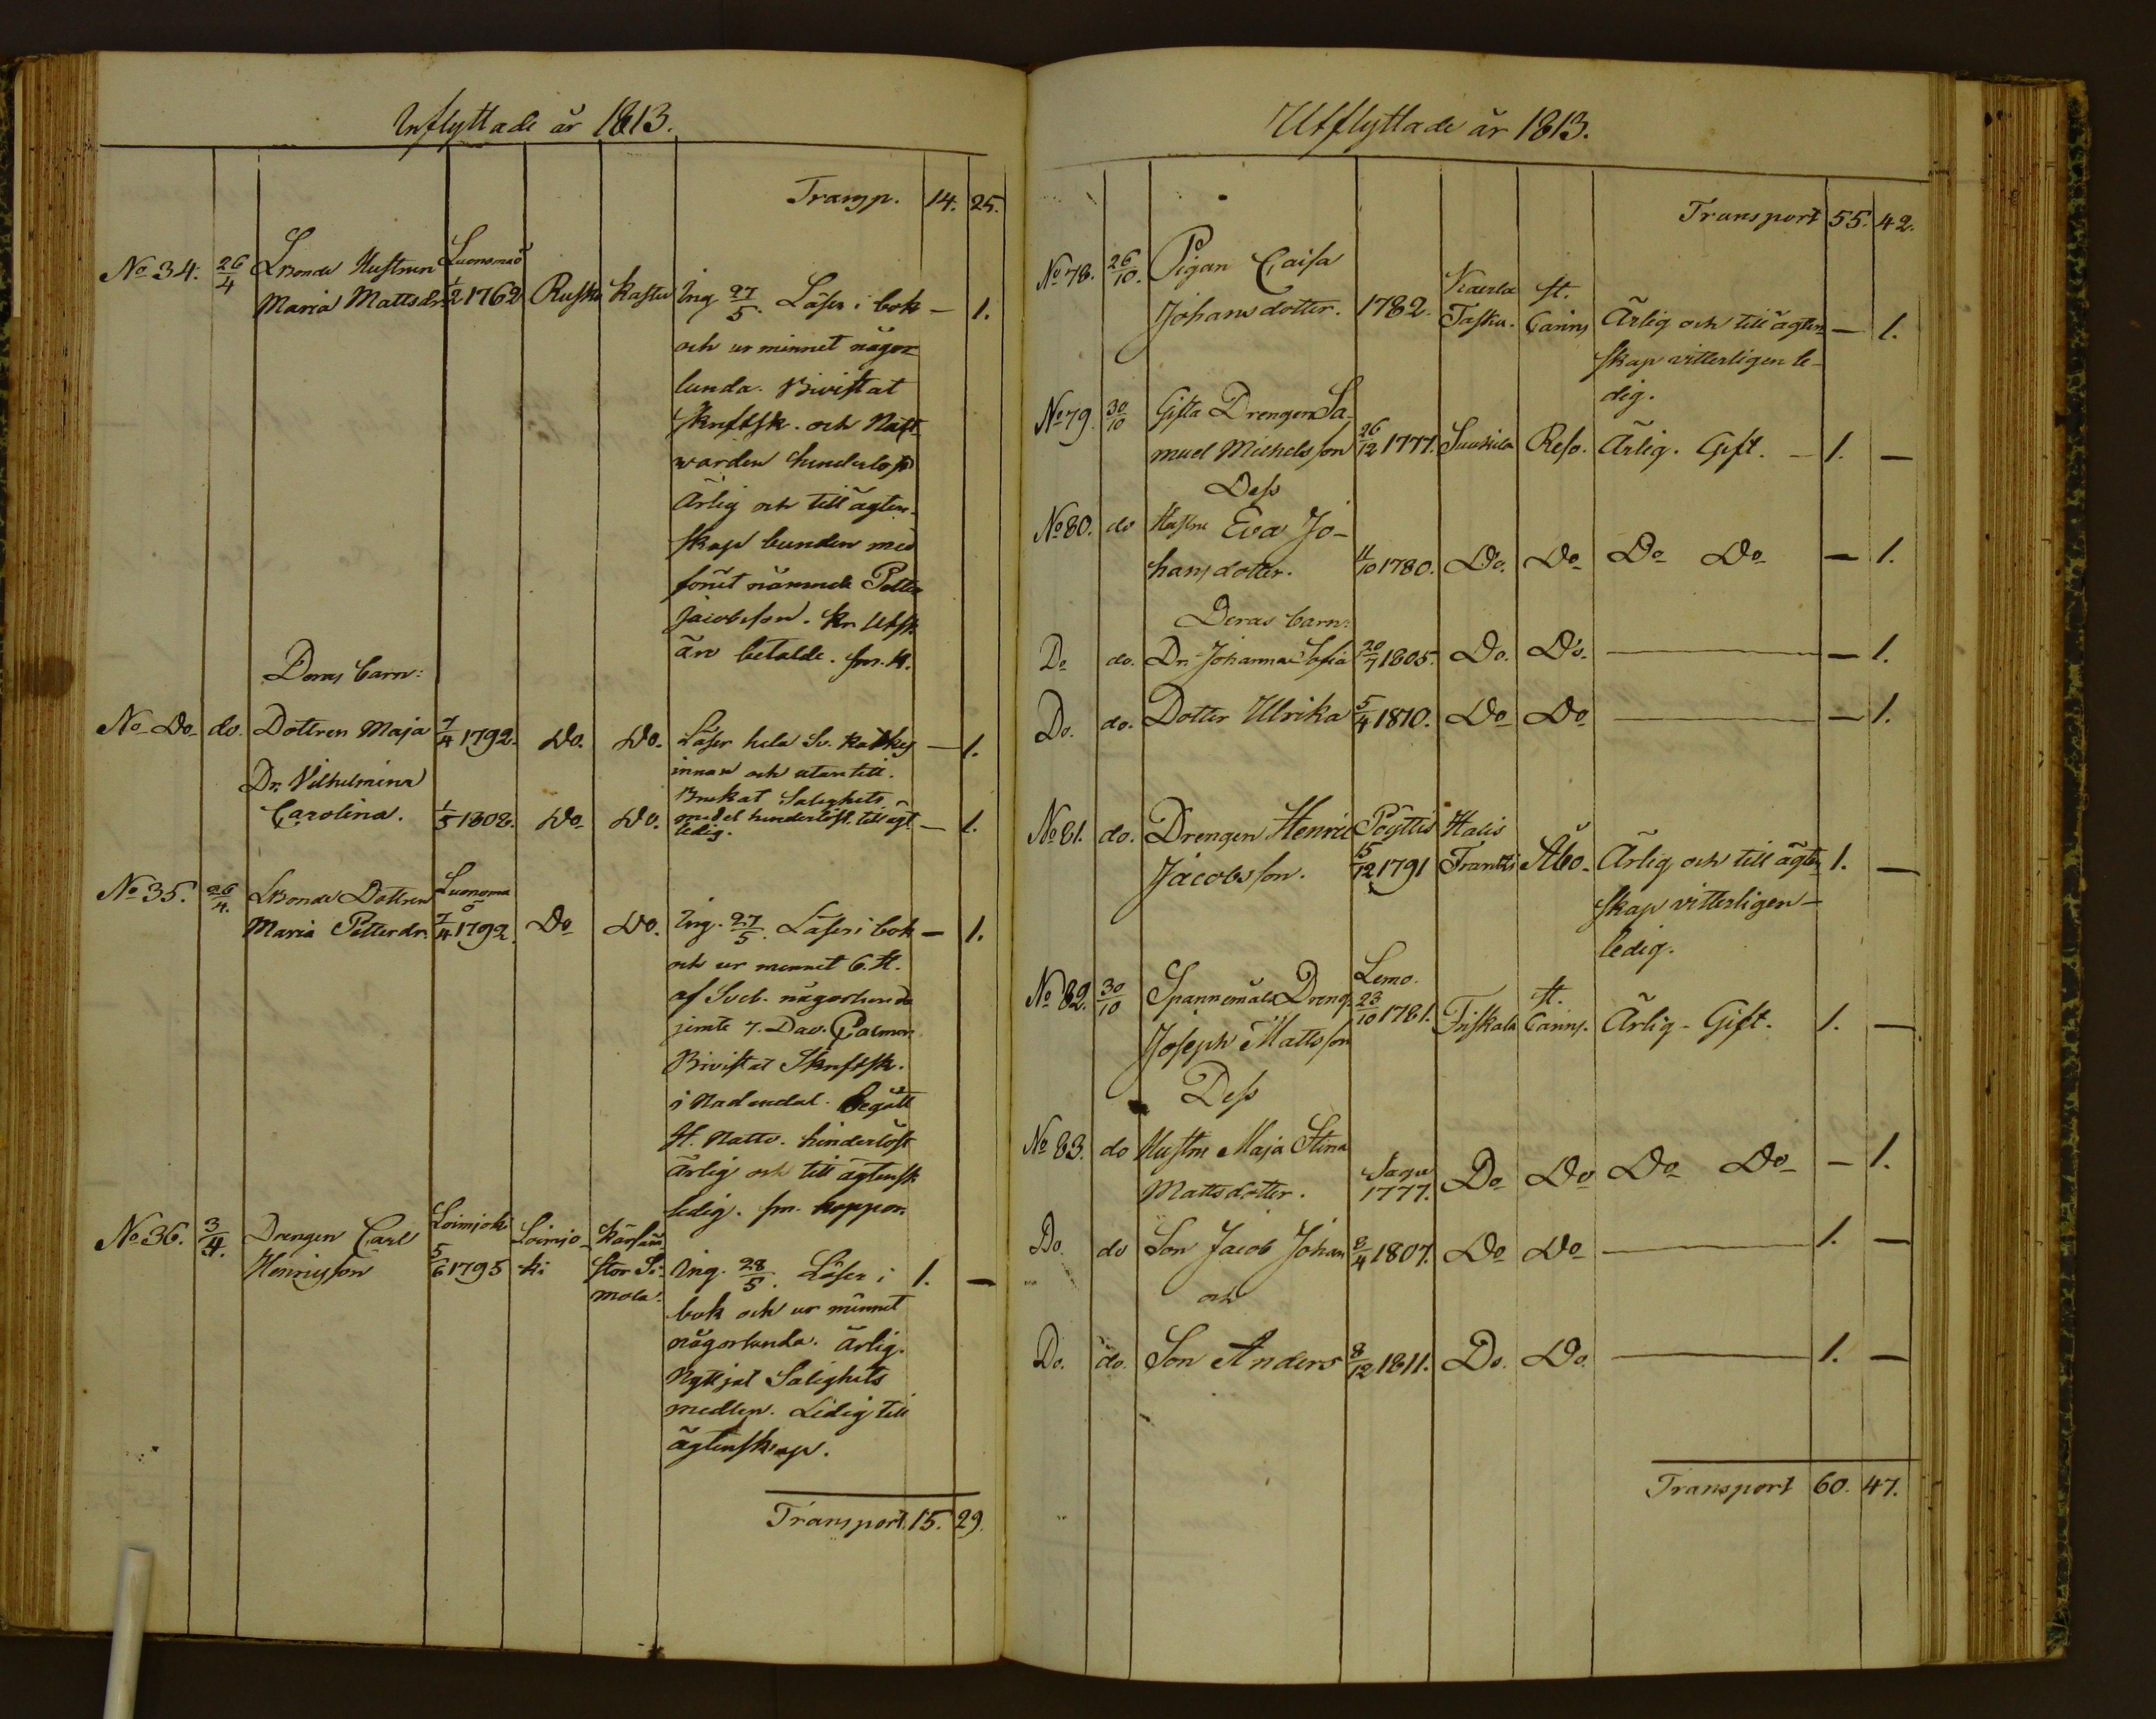 Inflyttade år 1813.
Transp. 14. 25.
No 34. 26/4 LBonde Hustrun Luonomaö
Maria Mattsdr. 1/2 1762 Rusko Kastu Ing. 27/5. Läser i bok — 1.
och ur minnet någor-
lunda. Bivistat
Skriftsk. och Natt-
varden hinderlöst
Ärlig och till ägten-
skap bunden med
förut nämnde Petter
Jacobsson. Kr. Utsk.
än betalde.
Deras barn:
No Do do. Dottren Maja 7/4 1792. Do. Do. Läser hela Sv. — 1.
innan och utan till.
Dr. Vilhelmina Brukat Salighets
Carolina. 1/5 1802. Do Do. medel hinderlöst. till ägt. — 1.
ledig.
No 35. 26/4. LBonde Dottren Luonoma
ö
Maria Petterdr. 7/4 1792. Do Do. Ing. 27/5. Läser i bok — 1.
och ur minnet 6. H.
af Sveb. någorlunda
jemte 7. Dav. Psalmer.
Bivistat Skriftsk.
i Nadendal. Begått
H. Nattv. hinderlöst
ärlig och till ägtensk.
ledig. fr. koppor.
No 36. 3/4. Drengen Carl Loimjoki Loimjo- Kärsämä
Henricsson 5/6 1795 ki Stor Si- Ing. 28/5. Läser i 1. —
mola. bok och ur minnet
någorlunda. ärlig.
Nyttjat Salighets
medlen. Ledig till
ägtenskap.
Transport. 15. 29.
Utflyttade år 1813.
Transport 55. 42.
No 78. 26/10. Pigan Caisa Kaerla St.
Johansdotter. 1782. Tasku. Carins Ärlig och till ägten — 1.
skap vitterligen le-
dig.
No 79. 30/10 Gifta Drengen Sa-
muel Michelsson 26/12 1777. Suukula Reso. Ärlig. Gift. — 1. —
Dess
No 80. do Hustru Eva Jo-
hansdotter. 11/10 1780. Do. Do Do Do — 1.
Deras barn:
Do do. Dr. Johanna Sofia 20/7 1805. Do. Do. — — 1.
Do. do. Dotter Ulrika 5/4 1810. Do Do — — 1.
No 81. do. Drengen Henric Pöyttis Halis
Jacobsson. 15/12 1791 Frantsi Åbo. Ärlig och till ägten 1. —
skap vitterligen
ledig.
No 82. 30/10 Spannemåls Dreng. Lemo. St.
Joseph Mattsson 23/10 1781. Friskala Carins. Ärlig - Gift. 1. —
Dess
No 83. do Hustru Maja Stina
Mattsdotter. Sagu 1777. Do Do Do Do — 1.
Do. do Son Jacob Johan 8/4 1807. Do Do — 1. —
och
Do. do. Son Anders 8/12 1811. Do. Do. — 1. —
Transport 60. 47.